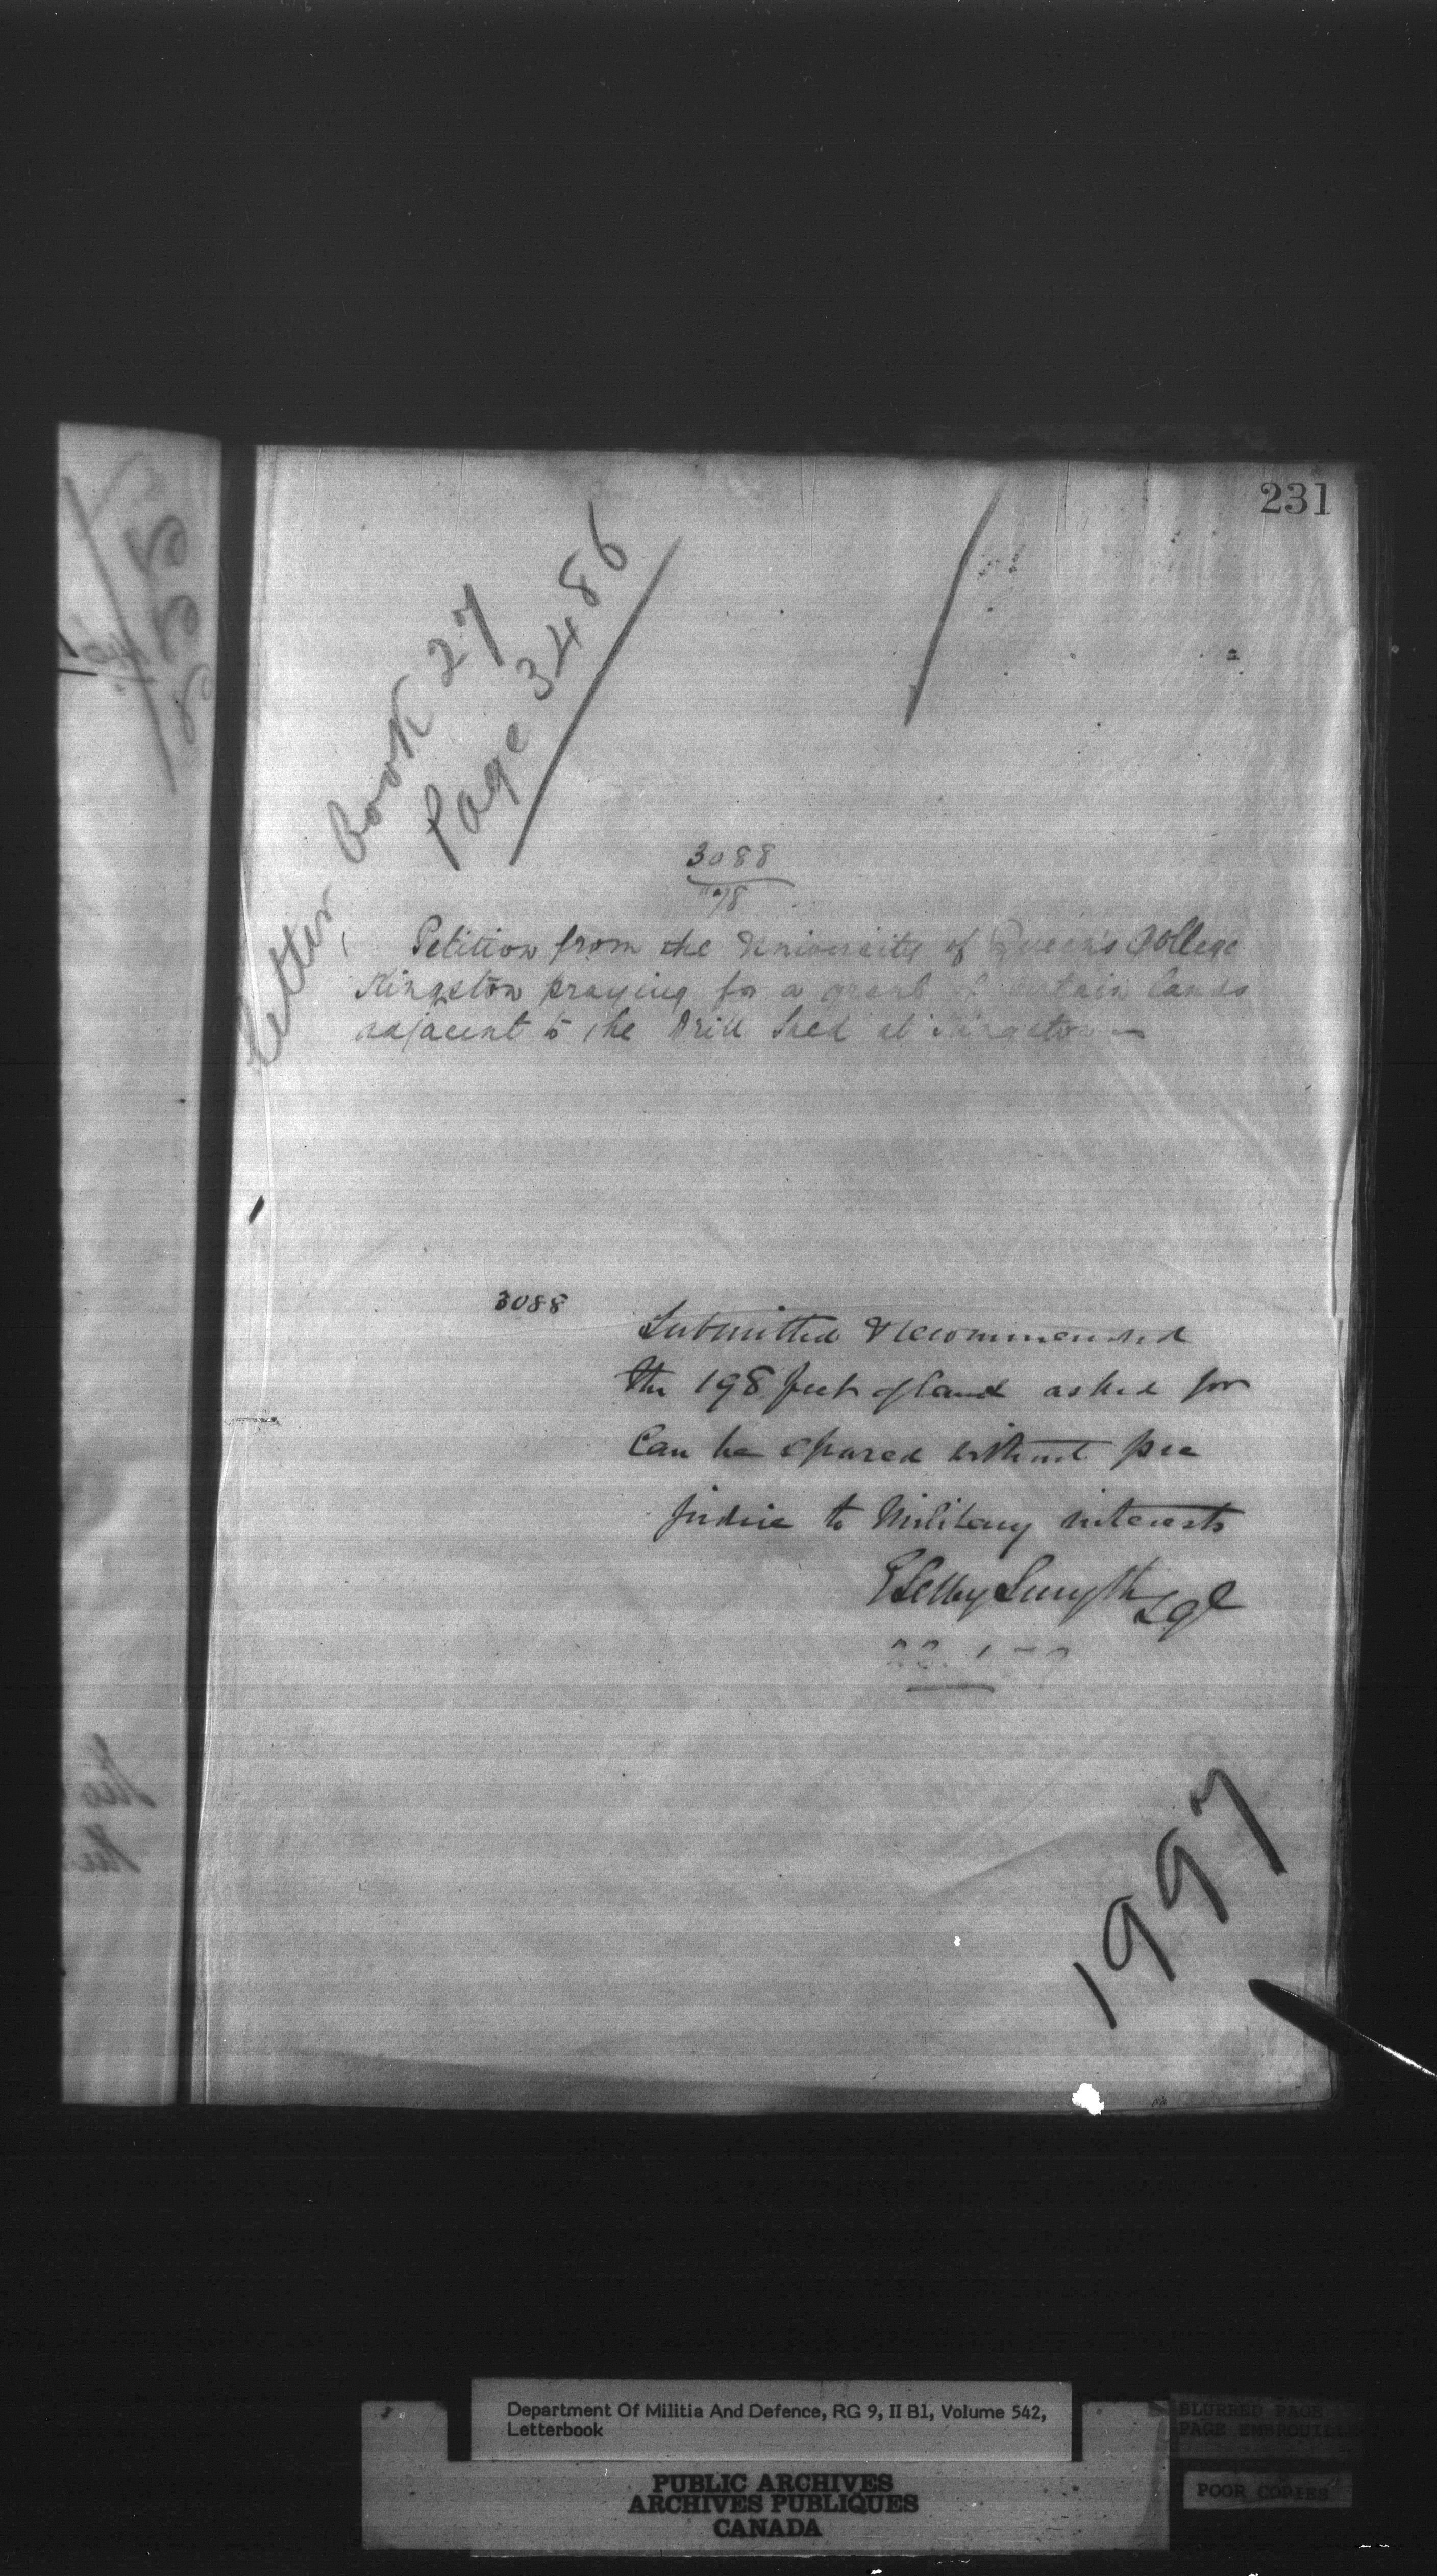 231
Letter Book 27
Page 3486
3088
"78
Petition from the University of Queen's College
Kingston praying for a grant of certain lands
adjacent to the Drill Shed at Kingston —
3088
Submitted & recommended
the 198 feet of land asked for
Can be spared without pre
judice to Military interests
E Selby Smyth Lgl
1997
Department Of Militia And Defence, RG 9, II B1, Volume 542,
Letterbook
PUBLIC ARCHIVES
ARCHIVES PUBLIQUES
CANADA
BLURRED PAGE
PAGE EMBROUILLE
POOR COPIES